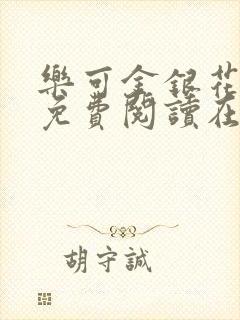 樂可金銀花
免費閱讀在
胡守誠